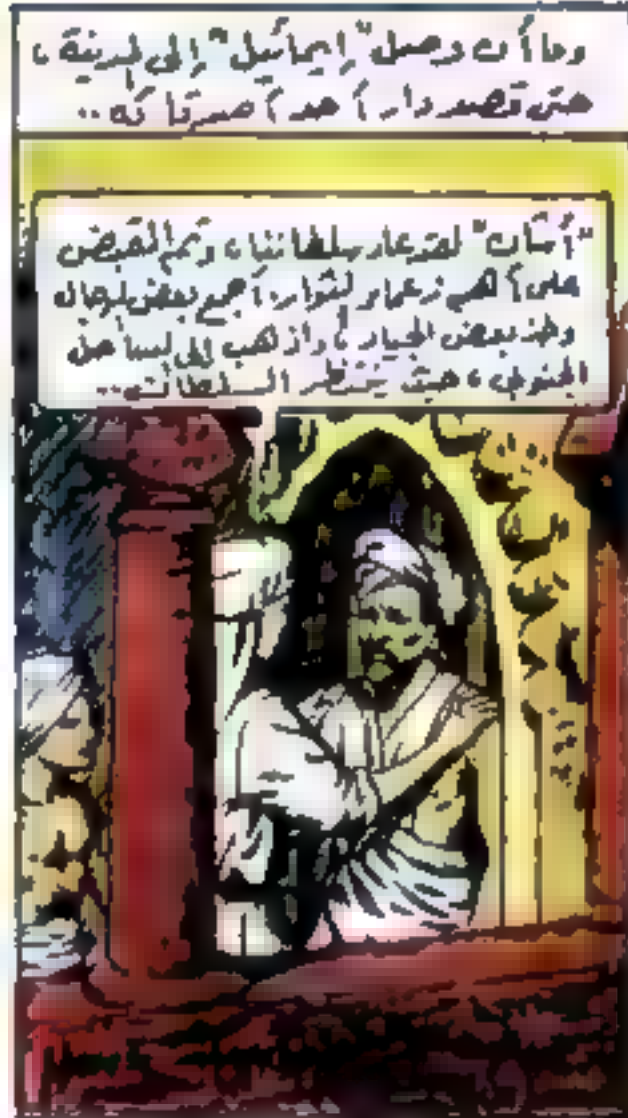 وما أن وصل "إيمائيل" إلى المدينة ،
حتى قصد دار أحد أصدقائه ..
"أستان" لقد عاد سلطاننا ، وتم القبض
على أهم زعماء الثوار ، أجمع بعض الرجال
وخذ بعض الجياد ، واذهب إلى الساحل
الجنوبي ، حيث ينتظر السلطان ..